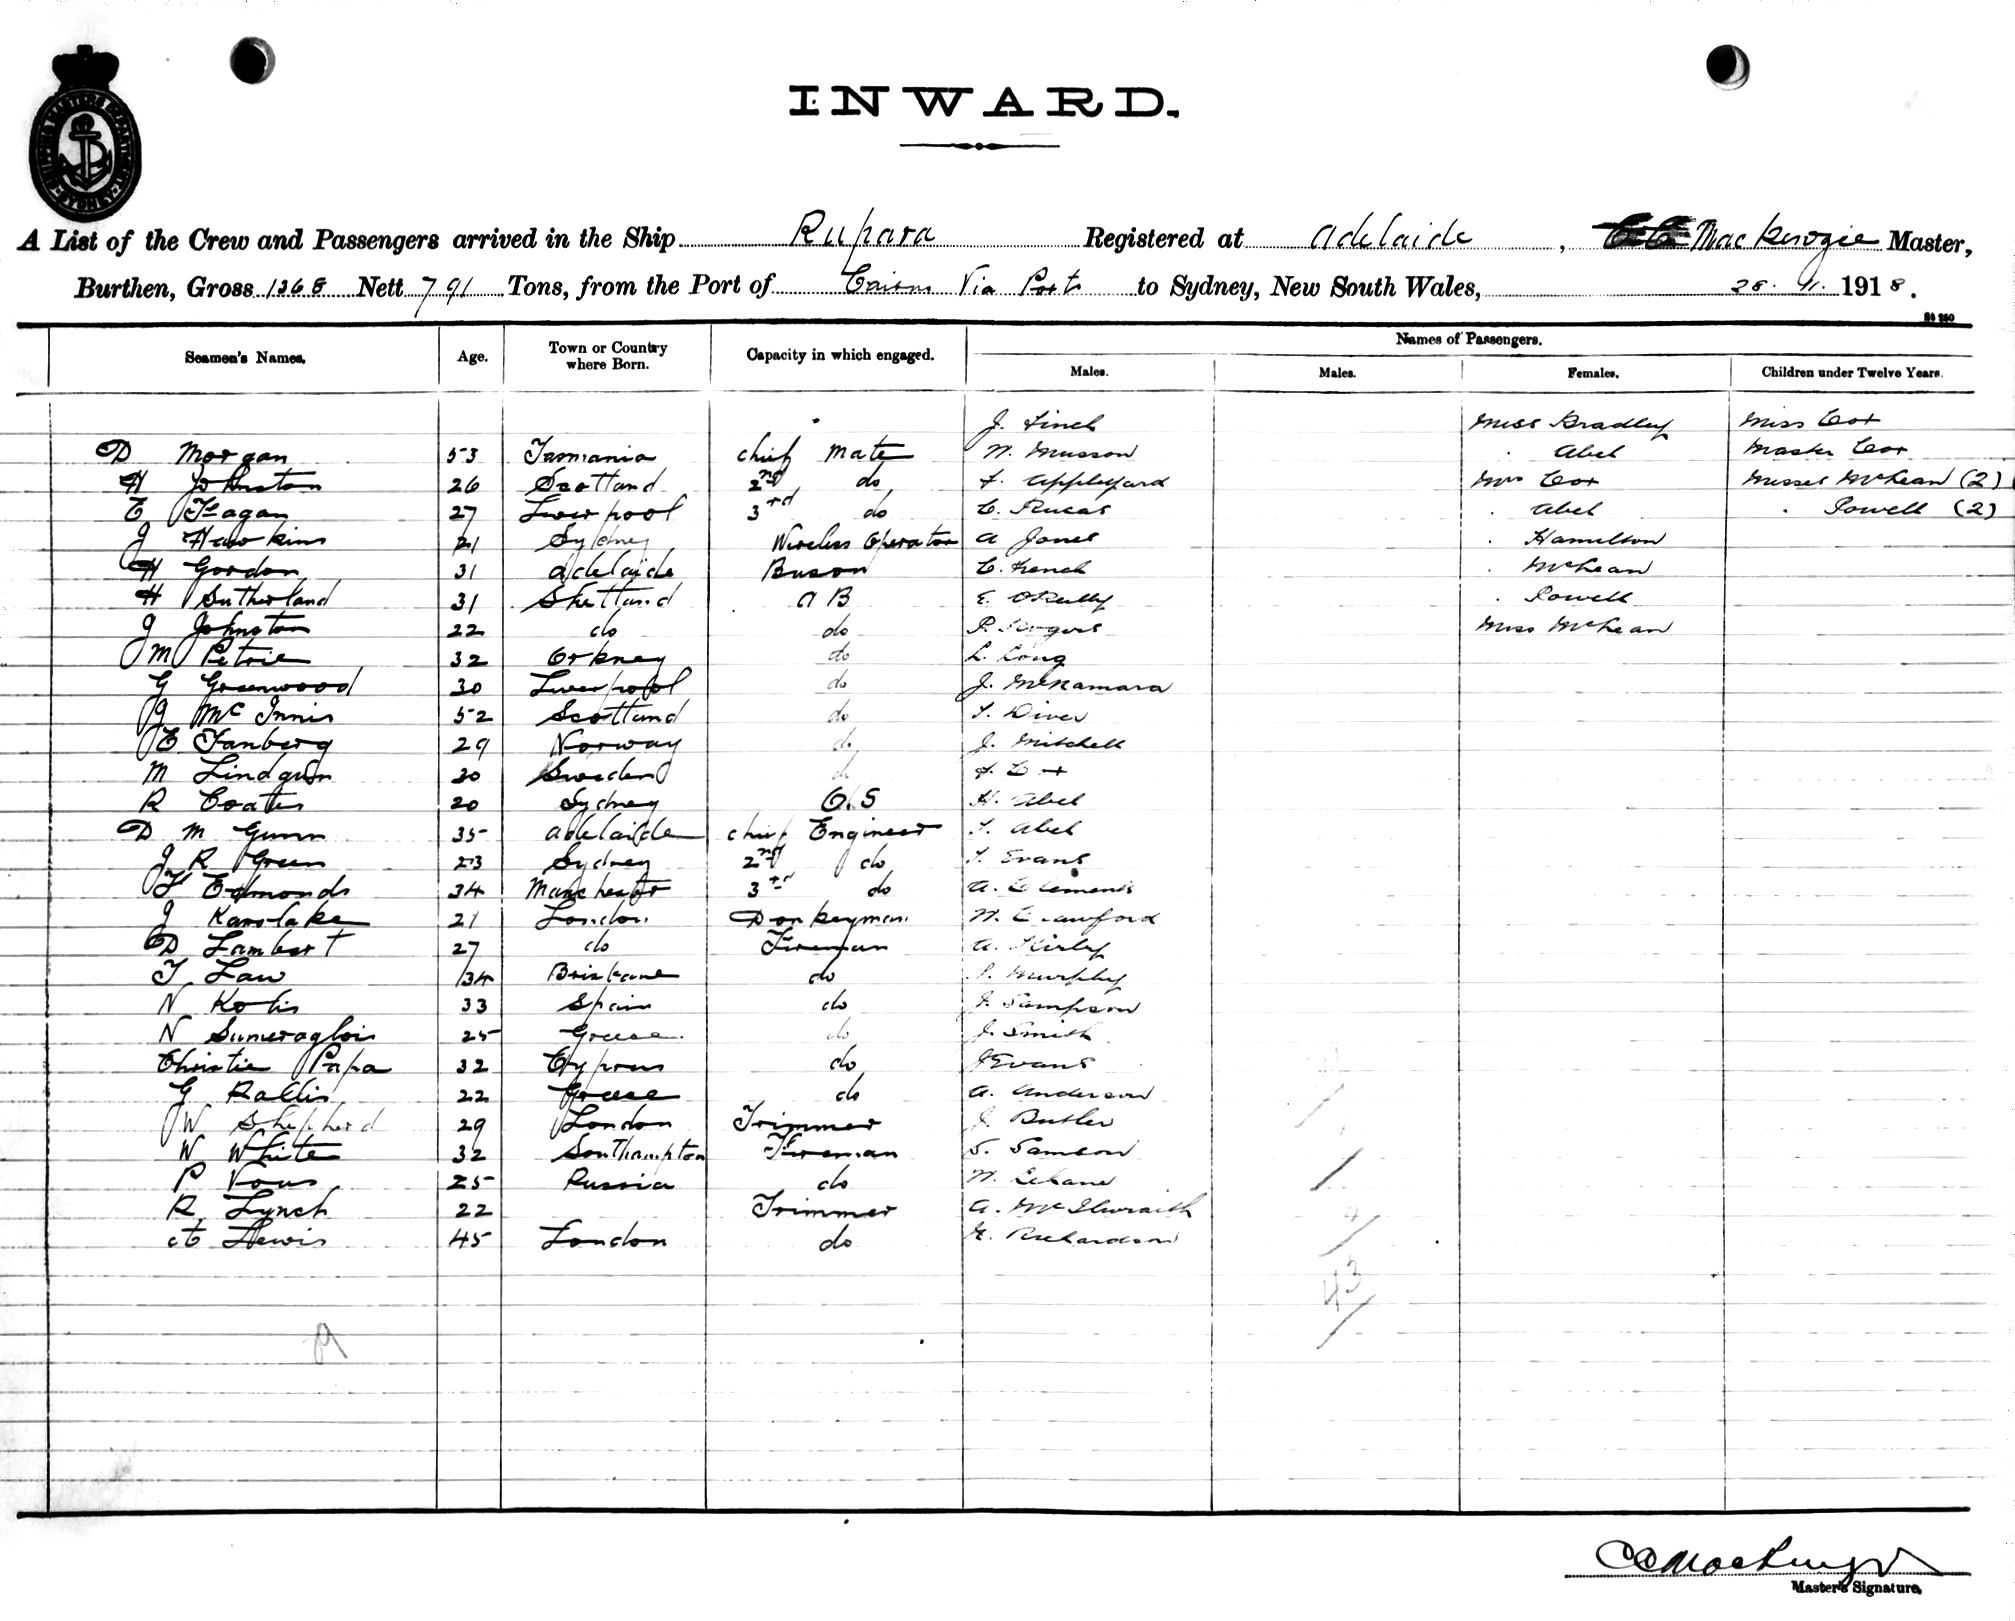 INWARD.
SHIPPING MASTERS DEPARTMENT SYDNEY
A List of the Crew and Passengers arrived in the Ship Rupara Registered at Adelaide, C C MacKenzie Master,
Burthen, Gross 1368 Nett 791 Tons, from the Port of Cairns Via Ports to Sydney, New South Wales, 28. 11. 1918.
Names of Passengers.
Seamen's Names. Age. Town or Country where Born. Capacity in which engaged. Males. Males. Females. Children under Twelve Years.
J. Finch Miss Bradley Miss Cox
D Morgan 53 Tasmania chief mate W. Musson . Abel Master Cox
H Johnston 26 Scotland 2nd do F. Appleyard Mrs Cox Misses McLean (2)
E Fagan 27 Liverpool 3rd do C. . Abel . Powell (2)
J Hawkins 21 Sydney Wireless Operator A Jones . Hamilton
H Gordon 31 Adelaide Buson C. French . McLean
H Sutherland 31 Shetland A B E. O'Reilly . Powell
J Johnston 22 do do P. Rogers Miss McLean
M Petrie 32 Orkney do L. Long
G Greenwood 30 Liverpool do J. McNamara
J McInnis 52 Scotland do T. Diver
E Fanberg 29 Norway do J. Mitchell
M Lindgren 30 Sweden do F. Cox
R Coates 20 Sydney O.S H. Abel
D M Gunn 35 Adelaide chief Engineer T. Abel
J R Green 23 Sydney 2nd do T. Evans
F Edmonds 34 Manchester 3rd do A. Clements
J Karslake 21 London Donkeyman W. Crawford
D Lambert 27 do Fireman A. Kirby
T Law 34 Brisbane do P. Murphy
N Kotis 33 Spain do J. Sampson
N Sumeroglois 25 Greece. do J. Smith
Christie Papa 32 Cyprus do J Evans
G Rallis 22 Greece do A. Anderson
W Shepherd 29 London Trimmer J. Butler
W White 32 Southampton Fireman S. Samson
P Vous 25 Russia do W. Lehane
R Lynch 22 Trimmer A. McIlwraith
A Lewis 45 London do G. Richardson
43
CC MacKenzie
Master's Signature.